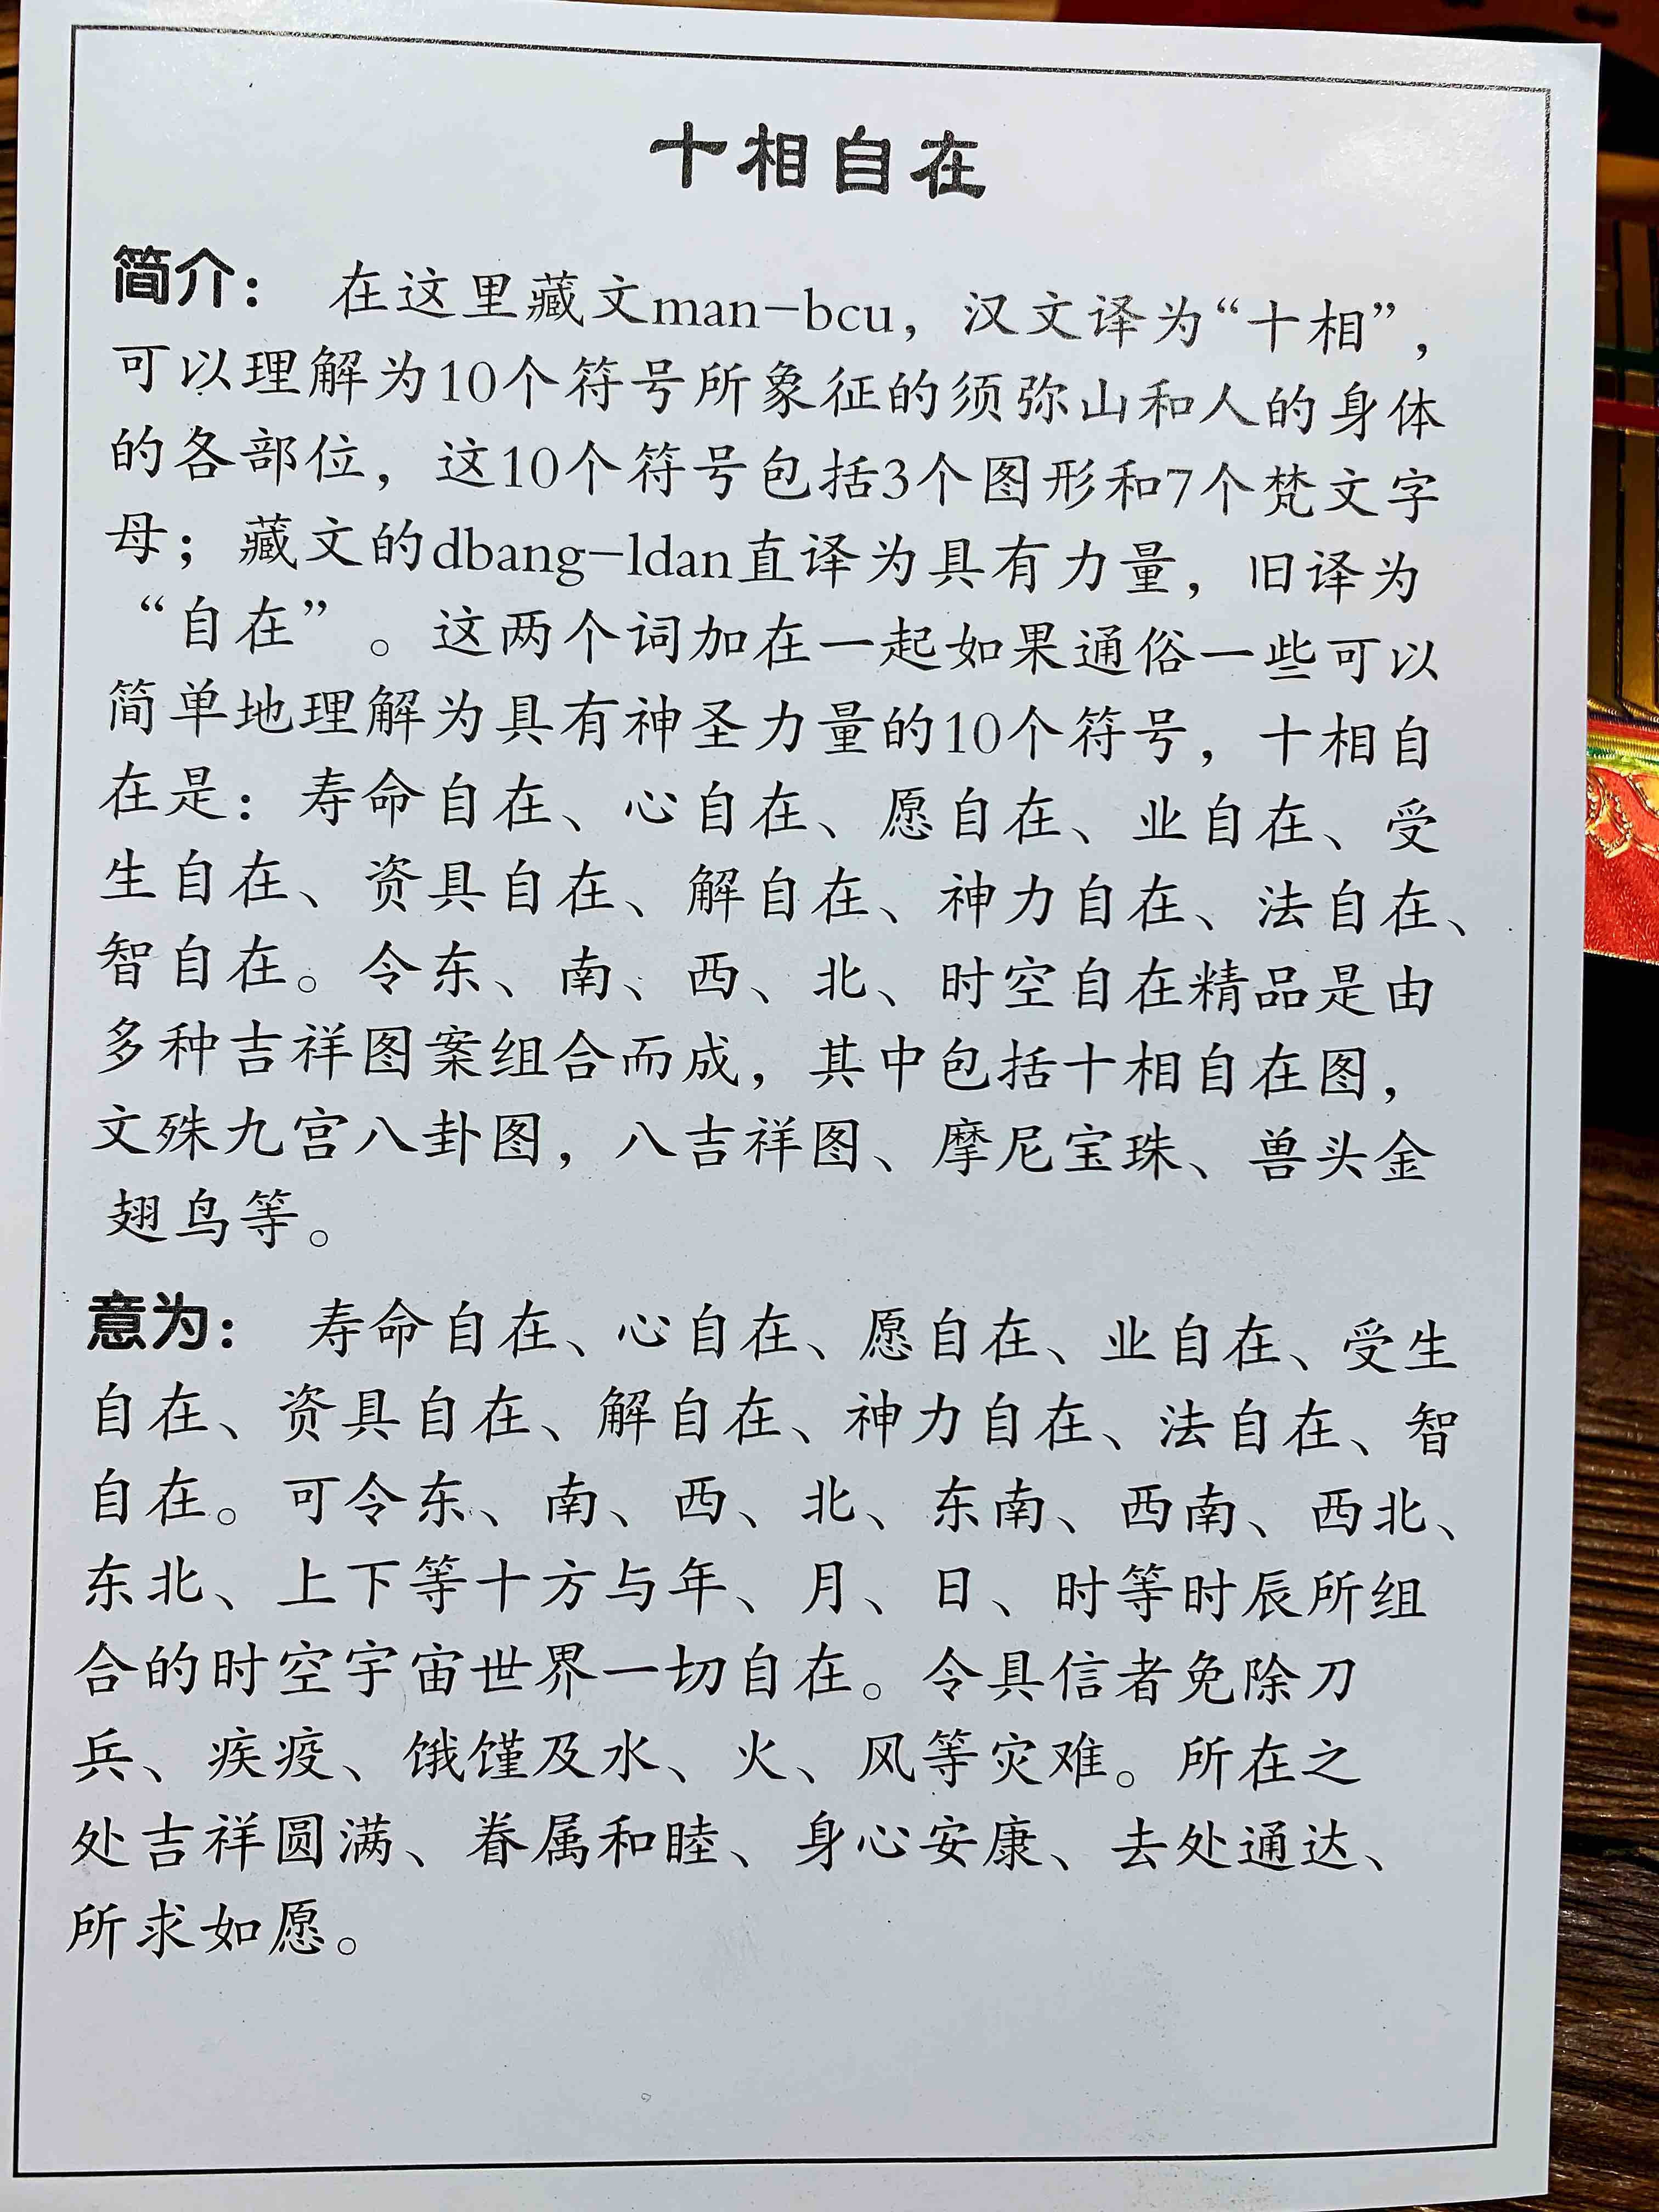 十相自在
简介： 在这里藏文man-bcu，汉文译为“十相”，
可以理解为10个符号所象征的须弥山和人的身体
的各部位，这10个符号包括3个图形和7个梵文字
母；藏文的dbang-ldan直译为具有力量，旧译为
“自在”。这两个词加在一起如果通俗一些可以
简单地理解为具有神圣力量的10个符号，十相自
在是：寿命自在、心自在、愿自在、业自在、受
生自在、资具自在、解自在、神力自在、法自在、
智自在。令东、南、西、北、时空自在精品是由
多种吉祥图案组合而成，其中包括十相自在图，
文殊九宫八卦图，八吉祥图、摩尼宝珠、兽头金
翅鸟等。
意为： 寿命自在、心自在、愿自在、业自在、受生
自在、资具自在、解自在、神力自在、法自在、智
自在。可令东、南、西、北、东南、西南、西北、
东北、上下等十方与年、月、日、时等时辰所组
合的时空宇宙世界一切自在。令具信者免除刀
兵、疾疫、饿馑及水、火、风等灾难。所在之
处吉祥圆满、眷属和睦、身心安康、去处通达、
所求如愿。